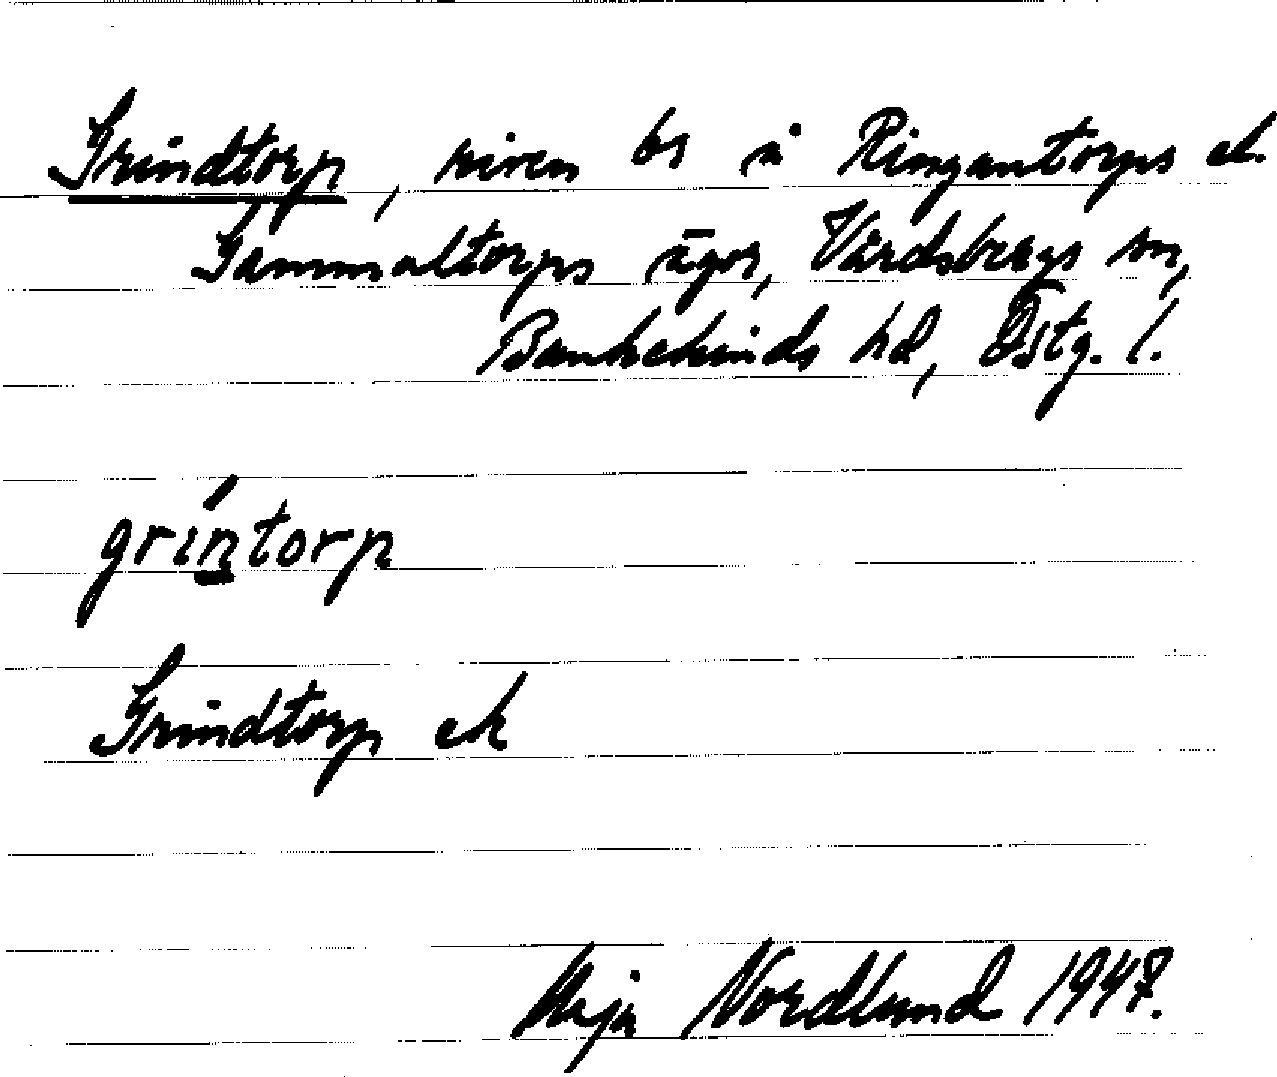 Grindtorp, riven bs å Ringantorps el.
Gammaltorps ägor, Vårdsbergs sn,
Bankekinds hd, Östg. l.
gríntorp
Grindtorp ek
Nordlund 1947.